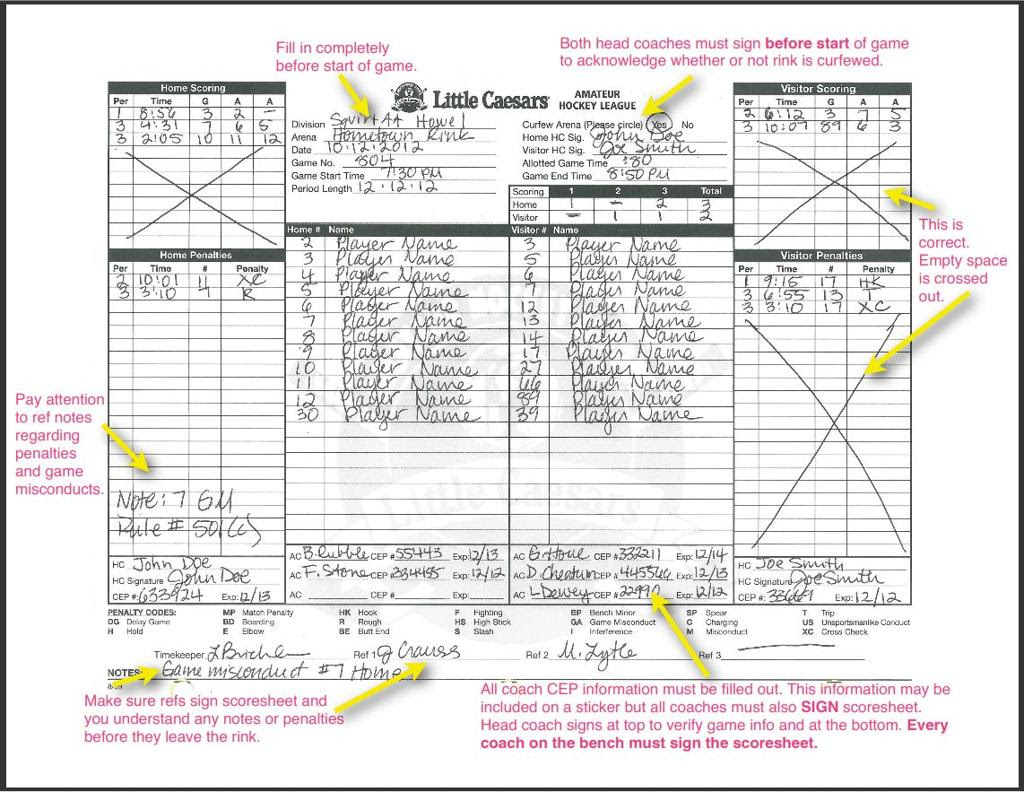 Fill in completely
before start of game.
Both head coaches must sign before start of game
to acknowledge whether or not rink is curfewed.
Little Caesars AMATEUR HOCKEY LEAGUE
Home Scoring
Per Time G A A
1 8:56 3 2 -
3 4:31 7 6 5
3 2:05 10 11 12
Division Squirt AA Howel
Arena Hometown Rink
Date 10·12·2012
Game No. 804
Game Start Time 7:30 PM
Period Length 12·12·12
Curfew Arena (Please circle) Yes No
Home HC Sig. John Doe
Visitor HC Sig. Joe Smith
Allotted Game Time :80
Game End Time 8:50 PM
Scoring 1 2 3 Total
Home 1 - 2 3
Visitor - 1 1 2
Visitor Scoring
Per Time G A A
2 6:12 3 7 5
3 10:07 89 6 3
This is
correct.
Empty space
is crossed
out.
Home Penalties
Per Time # Penalty
2 10:01 11 XC
3 3:10 4 R
Home # Name
2 Player Name
3 Player Name
4 Player Name
5 Player Name
6 Player Name
7 Player Name
8 Player Name
9 Player Name
10 Player Name
11 Player Name
12 Player Name
30 Player Name
Visitor # Name
3 Player Name
5 Player Name
6 Player Name
7 Player Name
12 Player Name
13 Player Name
14 Player Name
17 Player Name
27 Player Name
66 Player Name
89 Player Name
39 Player Name
Visitor Penalties
Per Time # Penalty
1 9:15 17 HK
3 6:55 13 T
3 3:10 17 XC
Pay attention
to ref notes
regarding
penalties
and game
misconducts.
Note: 7 GM
Rule # 501(c)
Little Caesars
HC John Doe
HC Signature John Doe
CEP #: 633924 Exp: 12/13
AC B. Rubble CEP # 55443 Exp: 12/13
AC F. Stone CEP # 334455 Exp: 12/12
AC CEP # Exp:
AC G. Howe CEP # 332211 Exp: 12/14
AC D. Cheatum CEP # 445566 Exp: 12/13
AC L. Dewey CEP # 22990 Exp: 12/12
HC Joe Smith
HC Signature Joe Smith
CEP #: 33669 Exp: 12/12
PENALTY CODES: MP Match Penalty HK Hook F Fighting BP Bench Minor SP Spear T Trip
DG Delay Game BD Boarding R Rough HS High Stick GA Game Misconduct C Charging US Unsportsmanlike Conduct
H Hold E Elbow BE Butt End S Slash I Interference M Misconduct XC Cross Check
Timekeeper Ref 1 J Crauss Ref 2 M. Lytle Ref 3
NOTES: Game misconduct #7 Home
Make sure refs sign scoresheet and
you understand any notes or penalties
before they leave the rink.
All coach CEP information must be filled out. This information may be
included on a sticker but all coaches must also SIGN scoresheet.
Head coach signs at top to verify game info and at the bottom. Every
coach on the bench must sign the scoresheet.